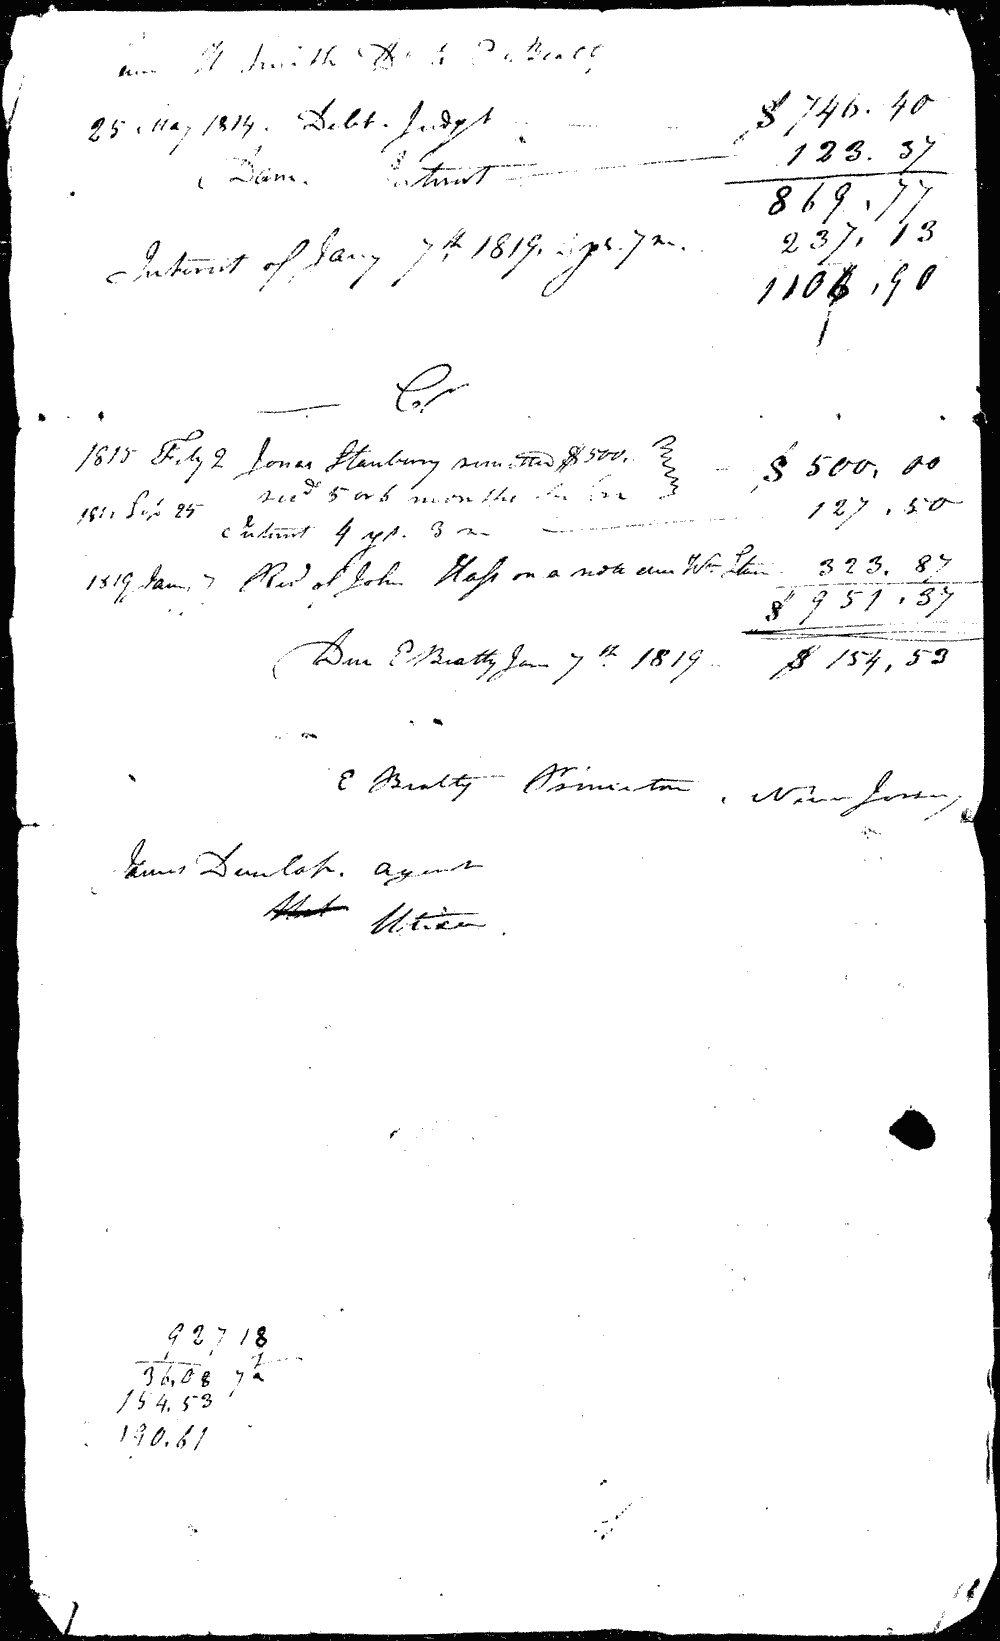 Smith Dr to E Beatty
25 May 1814. Debt. Judgt $ 746. 40
Dam. Interest 123. 37
869. 77
Interest of Jany 7th 1819. yr. 7 m. 237. 13
1106. 90
Cr
1815 Feby 2 Jonas Stanbury remitted $500. $ 500. 00
recd 5 or 6 months
Sep 25 127. 50
Interest 4 yr. 3 m
1819 Jany 7 Recd of John Hass on a note due Wm 323. 87
$ 951. 37
Due E Beatty Jan 7th 1819 $ 154, 53
E Beatty Princeton, New Jersey
James Dunlap. agent
Utica.
927 18
36,08 7
154. 53
190. 61